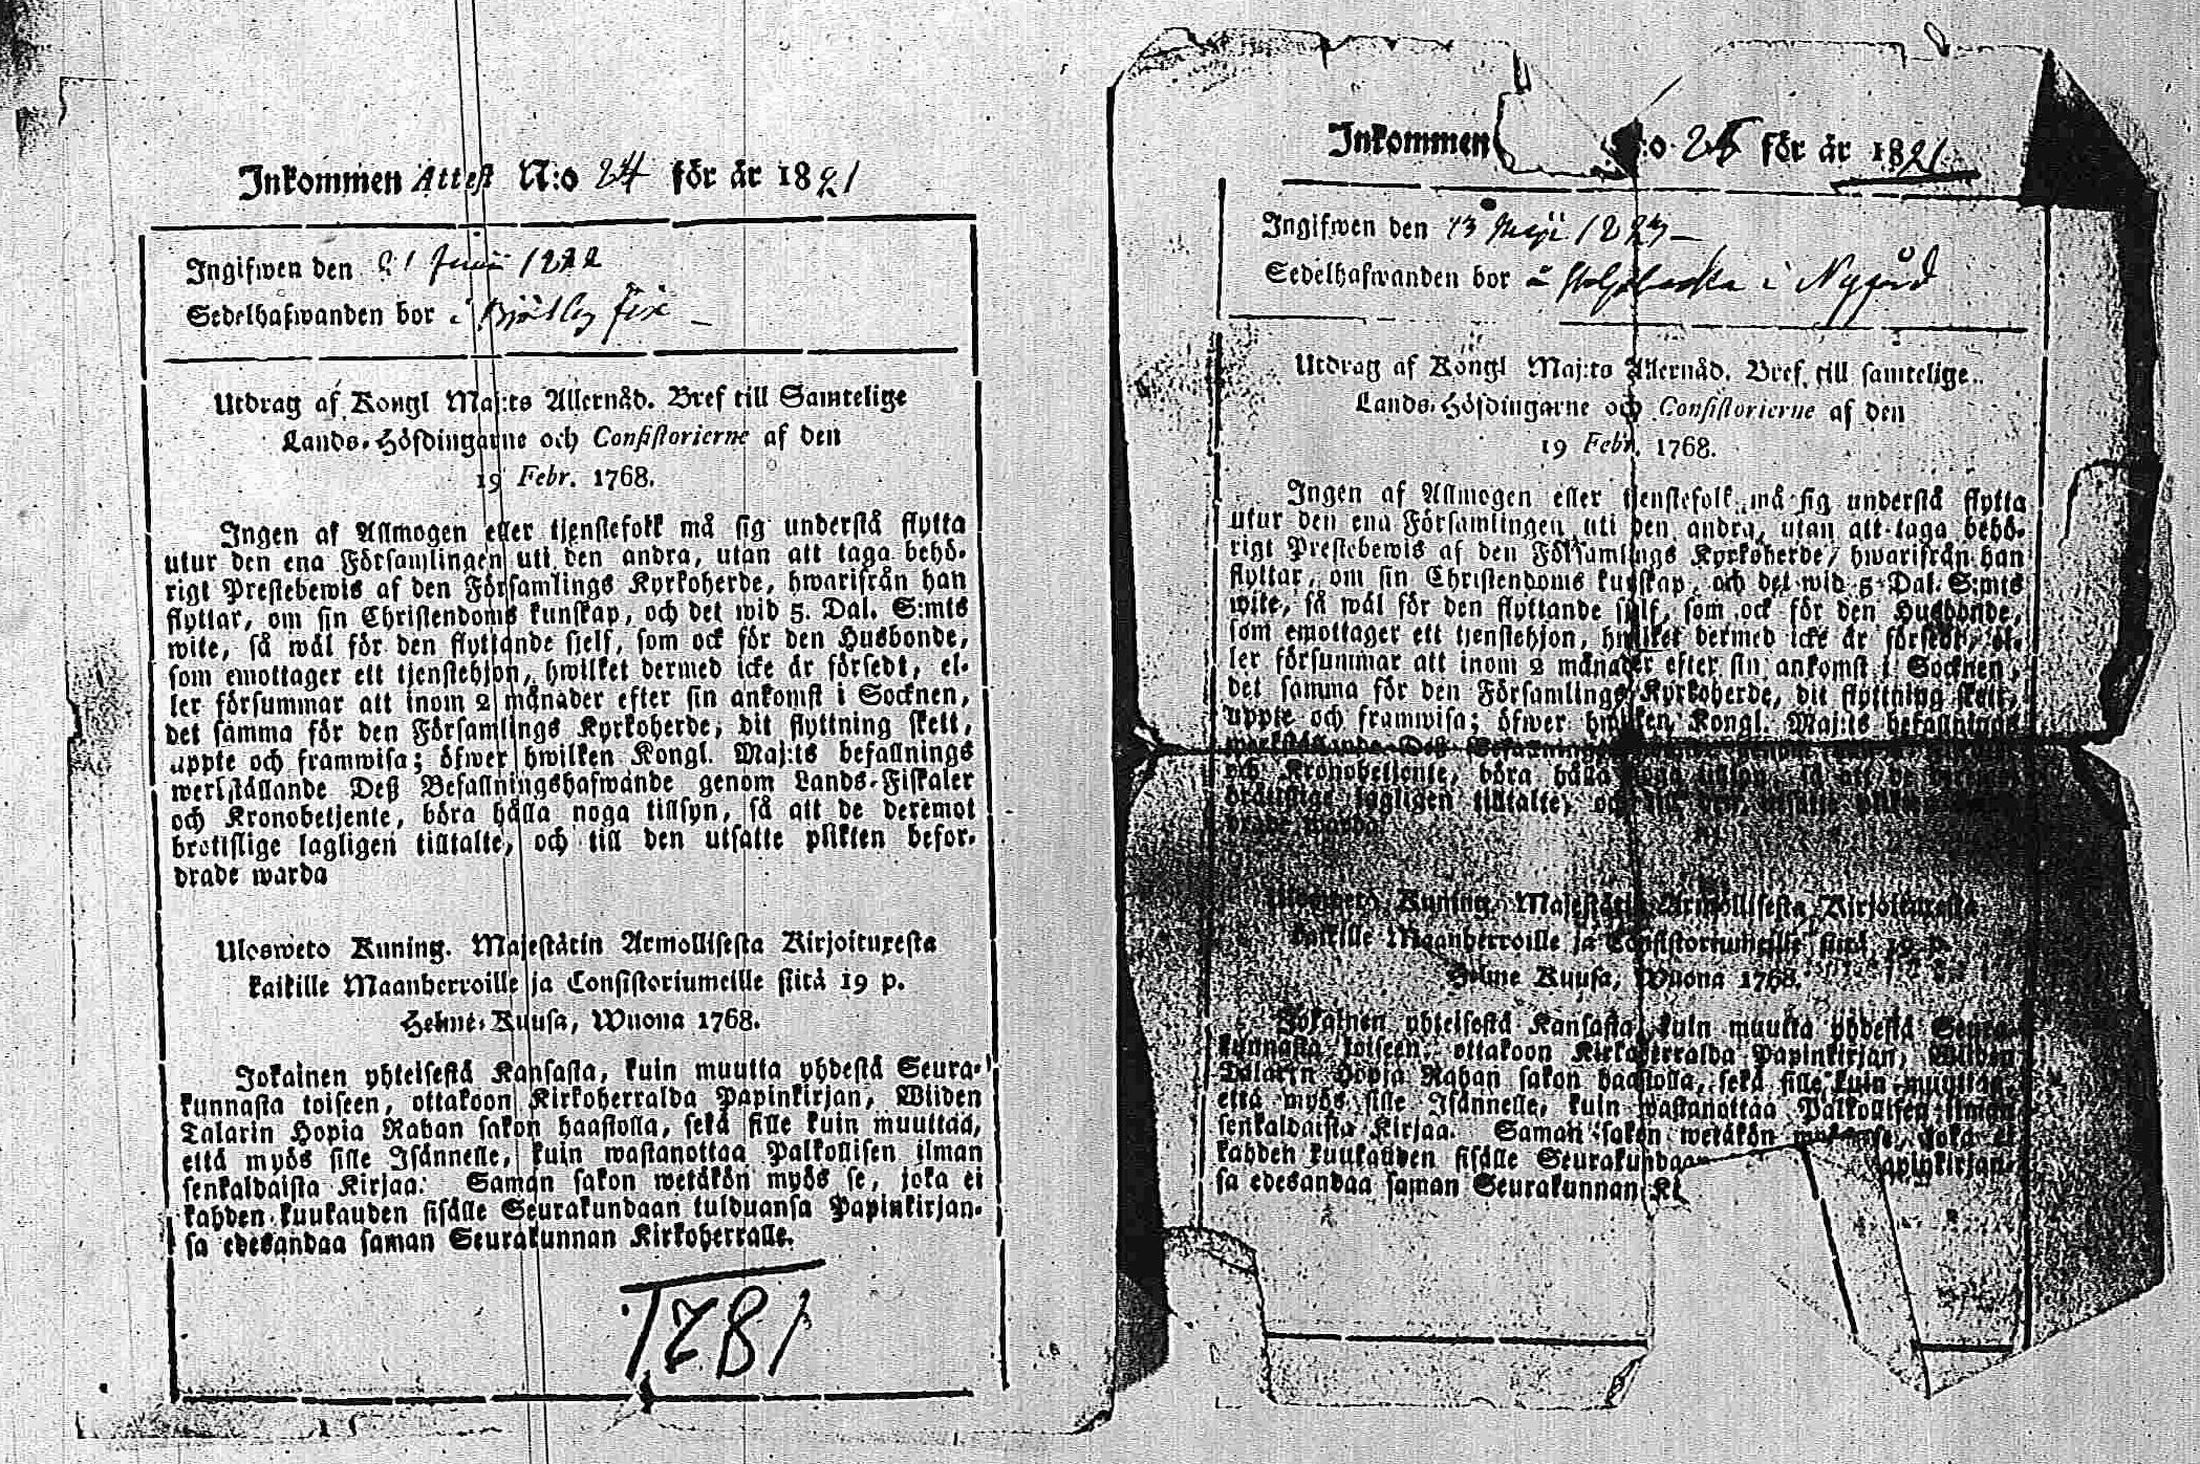 Inkommen Attest N:o 24 för år 1821
Ingifwen den 21 Junii 1822
Sedelhafwanden bor i
Utdrag af Kongl Maj:ts Allernåd. Bref till Samtelige
Lands-Höfdingarne och Consistorierne af den
19 Febr. 1768.
Ingen af Allmogen eller tjenstefolk må sig understå flytta
utur den ena Församlingen uti den andra, utan att taga behö-
rigt Prestebewis af den Församlings Kyrkoherde, hwarifrån han
flyttar, om sin Christendoms kunskap, och det wid 5. Dal. S:mts
wite, så wäl för den flyttande sjelf, som ock för den Husbonde,
som emottager ett tjenstehjon, hwilket dermed icke är försedt, el-
ler försummar att inom 2 månader efter sin ankomst i Socknen,
det samma för den Församlings Kyrkoherde, dit flyttning skett,
uppte och framwisa; öfwer hwilken Kongl. Maj:ts befallnings
werkställande Deß Befallningshafwande genom Lands-Fiskaler
och Kronobetjente, böra hålla noga tillsyn, så att de deremot
brottslige lagligen tilltalte, och till den utsatte plikten befor-
drade warda
Ulosweto Kuning. Majestätin Armollisesta Kirjoituxesta
kaikille Maanherroille ja Consistoriumeille siitä 19 p.
Helme-Kuusa, Wuona 1768.
Jokainen yhteisestä Kansasta, kuin muutta yhdestä Seura-
kunnasta toiseen, ottakoon Kirkoherralda Papinkirjan, Wiiden
Talarin Hopia Rahan sakon haastolla, sekä sille kuin muuttaa,
että myös sille Isännelle, kuin wastanottaa Palkollisen ilman
senkaldaista Kirjaa. Saman sakon wetäkön myös se, joka ei
kahden kuukauden sisälle Seurakundaan tulduansa Papinkirjan-
sa edesandaa saman Seurakunnan Kirkoherralle.
1781
Inkommen :o 25 för år 1821
Ingifwen den 13 Maji 1823
Sedelhafwanden bor å i Nygård
Utdrag af Kongl Maj:ts Allernåd. Bref till samtelige
Lands-Höfdingarne och Consistorierne af den
19 Febr. 1768.
Ingen af Allmogen eller tjenstefolk må sig understå flytta
utur den ena Församlingen uti den andra, utan att taga behö-
rigt Prestebewis af den Församlings Kyrkoherde, hwarifrån han
flyttar, om sin Christendoms kunskap, och det wid 5 Dal. S:mts
wite, så wäl för den flyttande sjelf, som ock för den Husbonde,
som emottager ett tjenstehjon, hwilket dermed icke är försedt, el-
ler försummar att inom 2 månader efter sin ankomst i Socknen,
det samma för den Församlings Kyrkoherde, dit flyttning skett,
uppte och framwisa; öfwer hwilken Kongl. Maj:ts befallnings
werkställande Deß
och Kronobetjente, böra hålla noga tillsyn, så att de
brottslige lagligen tilltalte, och till den utsatte plikten
drade warda
Ulosweto Kuning. Majestätin Armollisesta Kirjoituxesta
kaikille Maanherroille ja Consistoriumeille siitä 19 p.
Helme Kuusa, Wuona 1768.
Jokainen yhteisestä Kansasta, kuin muutta yhdestä Seura-
kunnasta toiseen, ottakoon Kirkoherralda Papinkirjan, Wiiden
Talarin Hopia Rahan sakon haastolla, sekä sille kuin muuttaa,
että myös sille Isännelle, kuin wastanottaa Palkollisen ilman
senkaldaista Kirjaa. Saman sakon wetäkön joka ei
kahden kuukauden sisälle Seurakundaan apinkirjan-
sa edesandaa saman Seurakunnan Ki